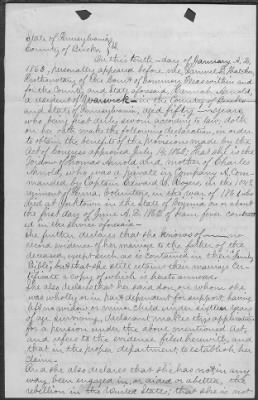 State of Pennsylvania
County of Bucks } SS.
On this tenth day of January A.D.
1863, personally appeared before me Samuel
Prothonotary of the Court of Common Pleas within and
for the County and State aforesaid Hannah Arnold,
a resident of Warwick in the County of Bucks
and State of Pennsylvania, aged fifty years
who being first duly sworn, according to law, doth
on her oath make the following declaration, in order
to obtain the benefit of the provisions made by the
act of Congress approved July 14, 1862; that she is the
widow of Thomas Arnold and mother of Charles
Arnold, who was a private in Company A, com-
manded by Captain Edward W. Rogers in the 104
regiment of Penna. volunteers in the war of 1861 who
died at Yorktown in the State of Virginia on or about
the first day of June A.D. 1862 of fever contract-
ed in the service aforesaid
She further declares that she knows of no
record evidence of her marriage to the father of the
deceased, except such as is contained in their family
Bible, but that she still retains their marriage Cer-
tificate a copy of which is hereto annexed.
She also declares that her said son, on whom she
was wholly or in part dependent for support having
left no widow or minor child under sixteen years
of age surviving, declarant makes this application
for a pension under the above mentioned Act,
and refers to the evidence filed herewith, and
that in the proper department to establish her
claim.
And she also declares that she has not in any
way been engaged in, or aided or abetted, the
rebellion in the United States; that she is not